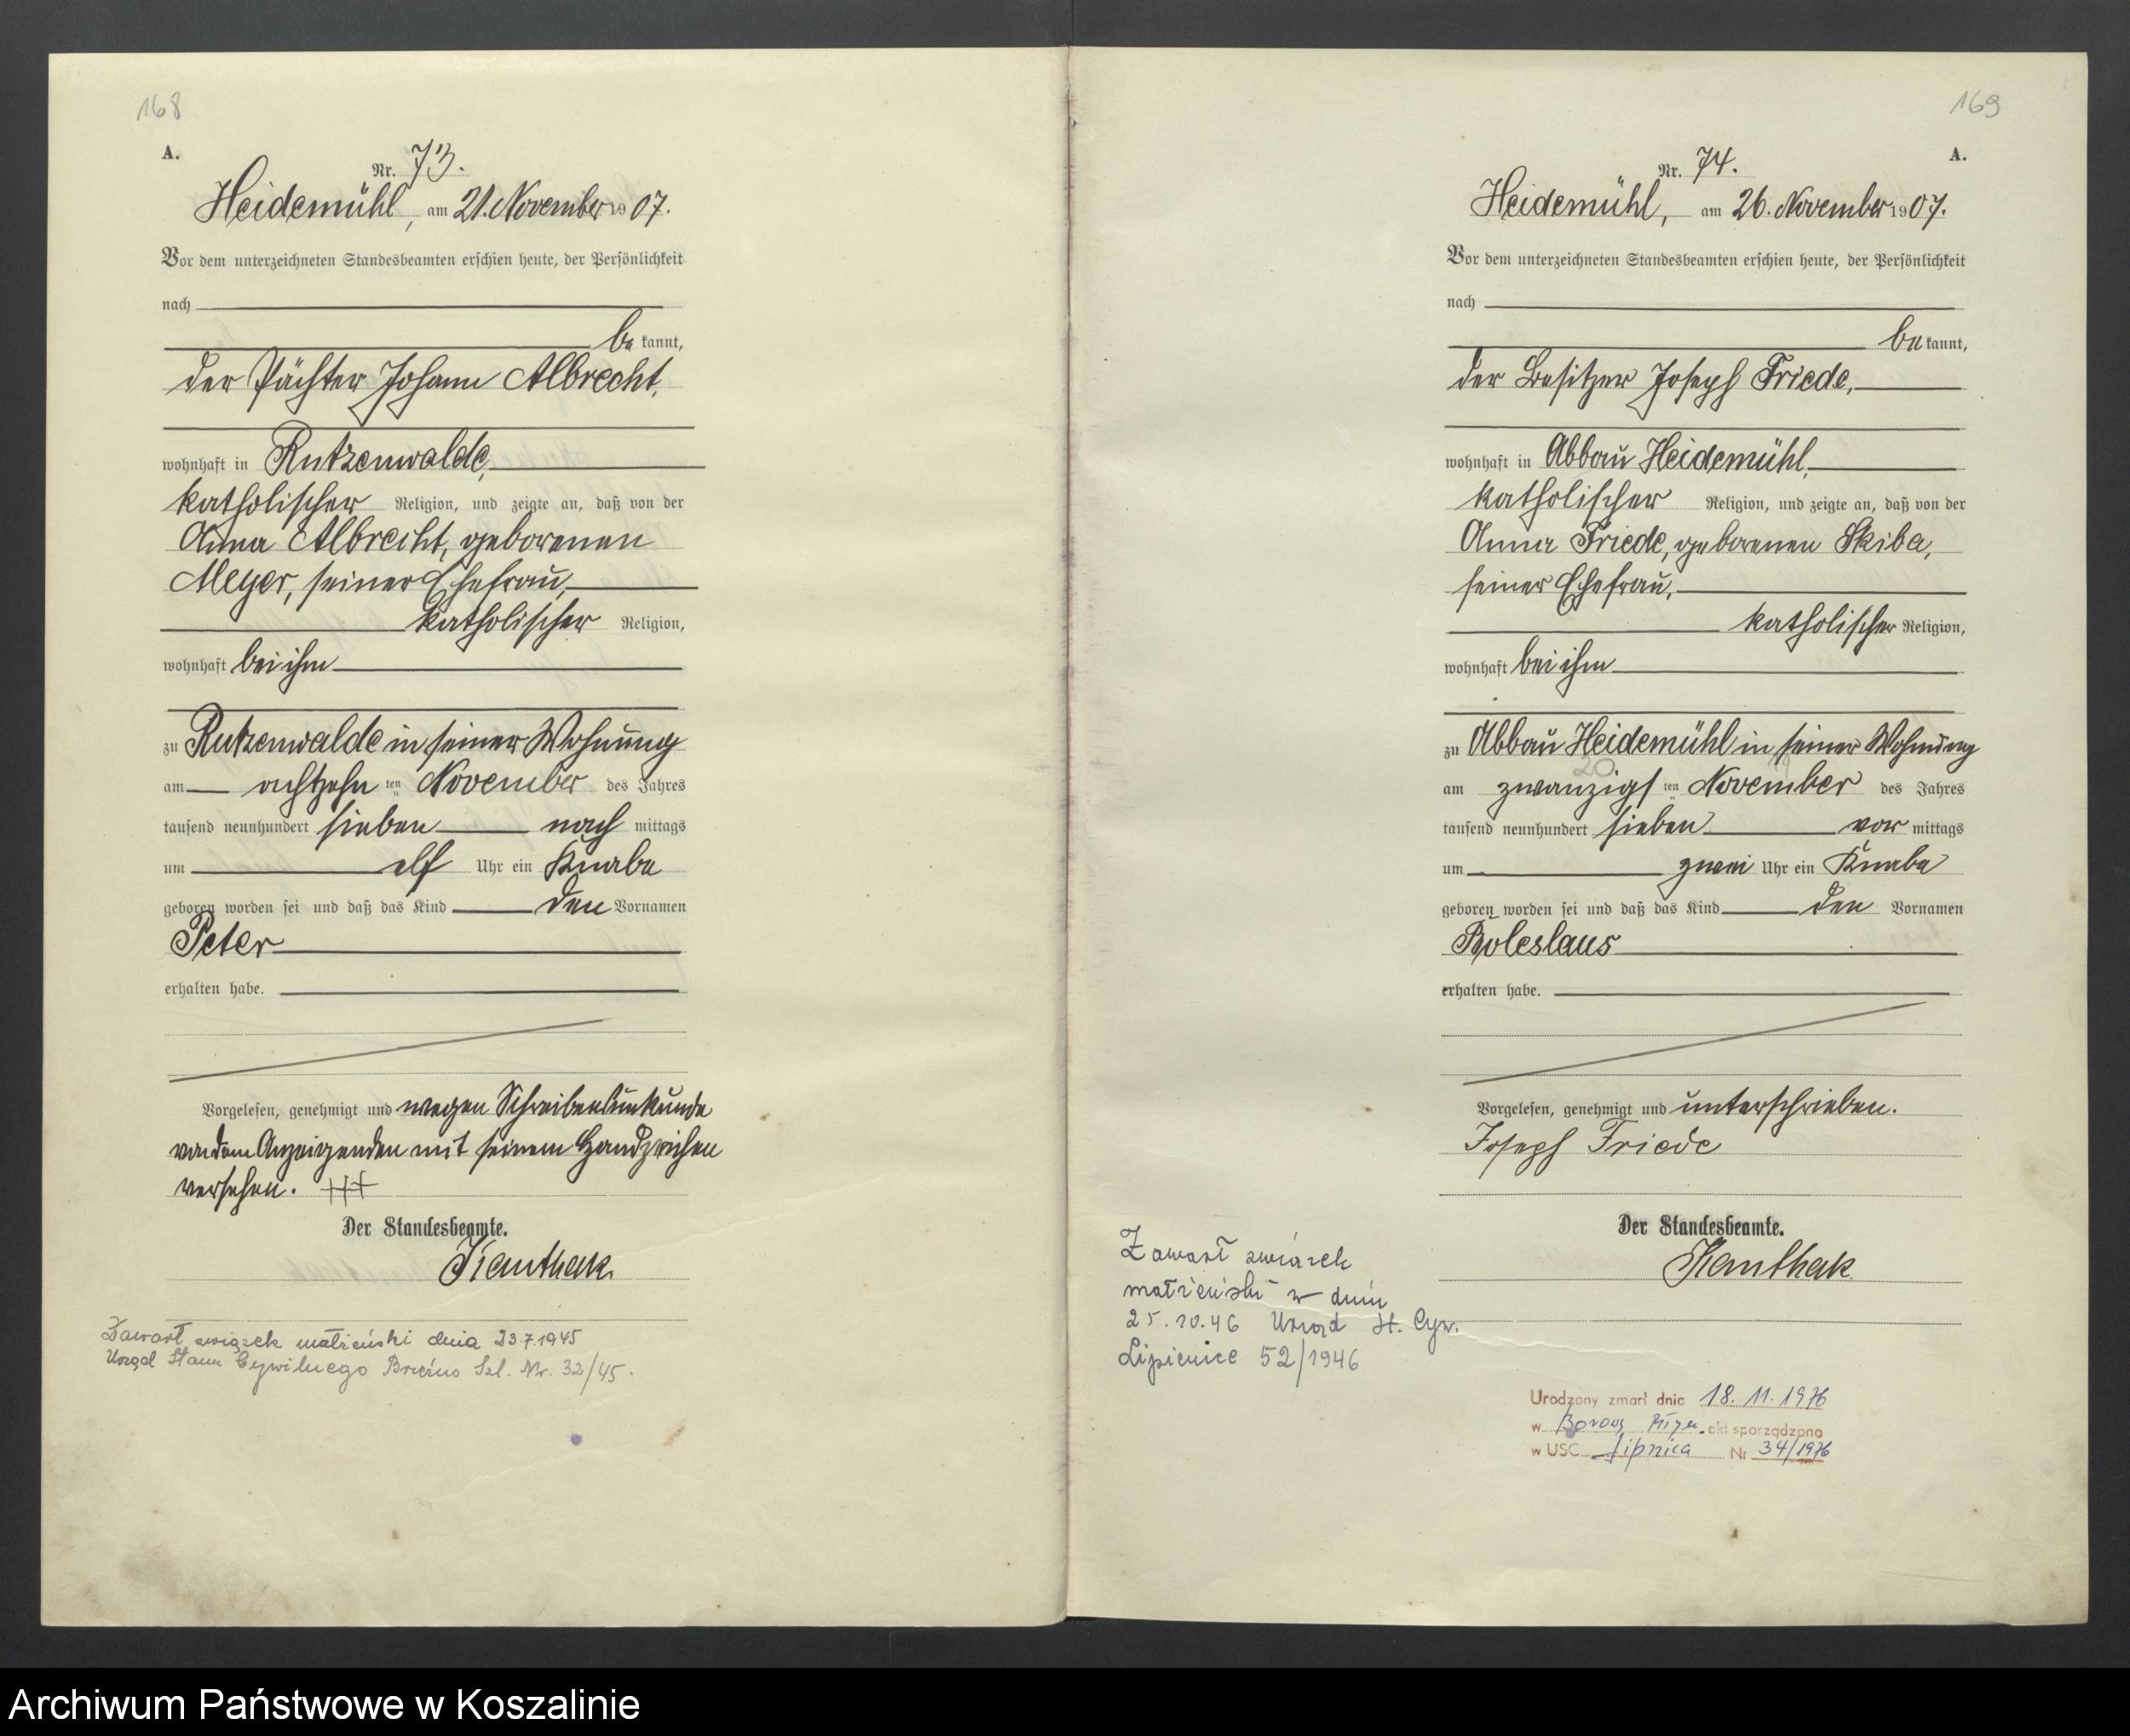 168
A.
Nr. 73.
Heidemühl, am 21. November 1907.
Vor dem unterzeichneten Standesbeamten erschien heute, der Persönlichkeit
nach
be kannt,
der Pächter Johann Albrecht,
wohnhaft in Rutzenwalde,
katholischer Religion, und zeigte an, daß von der
Anna Albrecht, geborenen
Meyer, seiner Ehefrau,
katholischer Religion,
wohnhaft bei ihm
zu Rutzenwalde in seiner Wohnung
am achtzehn ten November des Jahres
tausend neunhundert sieben nach mittags
um elf Uhr ein Knabe
geboren worden sei und daß das Kind den Vornamen
Peter
erhalten habe.
Vorgelesen, genehmigt und wegen Schreibensunkunde
von dem Anzeigenden mit seinem Handzeichen
versehen. +++
Der Standesbeamte.
Kanthak.
Zawarł związek małżeński dnia 23.7.1945
Urząd Stanu Cywilnego Brzeźno Szl. Nr. 32/45.
169
A.
Nr. 74.
Heidemühl, am 26. November 1907.
Vor dem unterzeichneten Standesbeamten erschien heute, der Persönlichkeit
nach
be kannt,
der Besitzer Joseph Friede,
wohnhaft in Abbau Heidemühl,
katholischer Religion, und zeigte an, daß von der
Anna Friede, geborenen Skiba,
seiner Ehefrau,
katholischer Religion,
wohnhaft bei ihm
zu Abbau Heidemühl in seiner Wohnung
20.
am zwanzigs ten November des Jahres
tausend neunhundert sieben vor mittags
um zwei Uhr ein Knabe
geboren worden sei und daß das Kind den Vornamen
Boleslaus
erhalten habe.
Vorgelesen, genehmigt und unterschrieben.
Joseph Friede
Der Standesbeamte.
Kanthak.
Zawarł związek
małżeński w dniu
25.10.46 Urząd St. Cyw.
Lipienice 52/1946
Urodzony zmarł dnia 18.11.1976
w Borowy Młyn akt sporządzono
w USC Lipnica Nr 34/1976
Archiwum Państwowe w Koszalinie